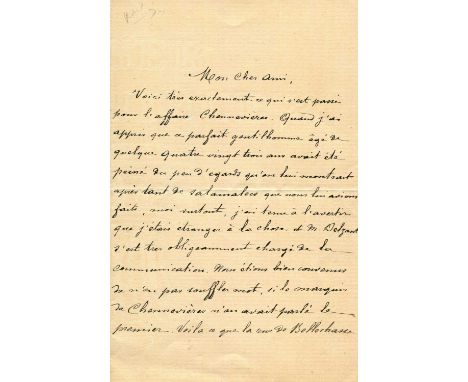 Mon cher ami,
Voici très exactement ce qui s'est passé
pour l'affaire Chennevières. Quand j'ai
appris que ce parfait gentilhomme âgé de
quelque quatre vingt trois ans avait été
peiné du peu d'égards qu'on lui montrait
après tant de salamalecs que nous lui avions
faits, moi surtout, j'ai tenu à l'avertir
que j'étais étranger à la chose et M. Delzant
s'est très obligeamment chargé de la
communication. Nous étions bien convenus
de n'en pas souffler mot, si le marquis
de Chennevières n'en avait parlé le
premier. Voilà ce que la rue de Bellechasse